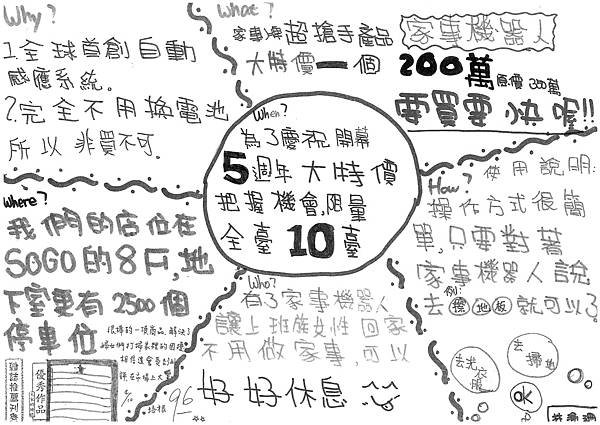 Why?
1.全球首創自動
感應系統.
2.完全不用換電池
所以非買不可.
What?
家事必備超搶手產品
大特價一個
家事機器人
200萬原價300萬
要買要快喔!!
When?
為了慶祝開幕
5週年大特價
把握機會,限量
全臺10臺
Where?
我們的店位在
SOGO的8F,地
下室更有2500個
停車位
Who?
有了家事機器人
讓上班族女性回家
不用做家事,可以
好好休息
How?
使用說明:
操作方式很簡
單,只要對著
家事機器人說
例:
去擦地板就可以了
去洗衣服
去掃地
OK
很棒的一項商品,解決了
婦女們打掃家裡的困擾
優秀作品
雜誌推薦刊登
96